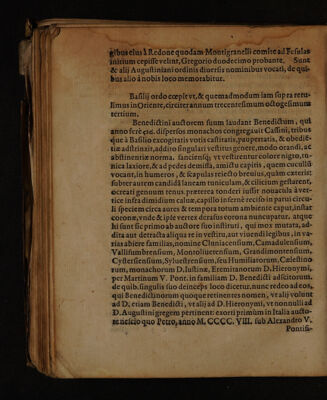 gibus eius à Redone quodam Montigranelli comite ad Fesulas
initium cepisse velint, Gregorio duodecimo probante. Sunt
& alij Augustiniani ordinis diuersis nominibus vocati, de qui-
bus alio à nobis loco memorabitur.
Basilij ordo cœpit vt, & quemadmodum iam supra retu-
limus in Oriente, circiter annum trecentesimum octogesimum
tertium.
Benedictini auctorem suum laudant Benedictum, qui
anno ferè dispersos monachos congregauit Cassini, tribus
que à Basilio excogitatis votis castitatis, paupertatis, & obedié-
tiæ adstrinxit, addito singulari vestitus genere, modo orandi, ac
abstinentiæ norma. sanciens vt vestirentur colore nigro, tu-
nica laxiore, & ad pedes demissa, amictu capitis, quem cucullū
vocant, in humeros, & scapulas reiecto breuius, quàm exteris:
subter autem candidi laneam tuniculam, & cilicium gestarent,
ocreati genuum tenus præterea tonderi iussit nouacula à ver-
tice infra dimidium caluæ, capillo infernè reciso in parui circu-
li speciem circa aures & tempora totum ambiente caput, instar
coronæ, vnde & ipse vertex derasus corona nuncupatur. atque
hi sunt sic primo ab auctore suo instituti, qui mox mutata, ad-
dita aut detracta aliqua re in vestitu, aut viuendi legibus, in va-
rias abiere familias, nomine Cluniacensium, Camadulensium,
Vallisumbrensium, Montoliuetensium, Grandimontensium,
Cystersensium, Syluestrensium, seu Humiliatorum, Cælestino-
rum, monachorum D. Iustinæ, Eremitanorum D. Hieronymi,
per Martinum V. Pont. in familiam D. Benedicti adscitorum.
de quib. singulis suo deinceps loco dicetur. nunc redeo ad eos,
qui Benedictinorum quoque retinentes nomen, vt alij volunt
ad D. etiam Benedicti, vt alij ad D. Hieronymi, vt nonnulli ad
D. Augustini gregem pertinent: exorti primùm in Italia aucto-
re nescio quo Petro, anno M. CCCC. VIII. sub Alexandro V.
Pontifi-